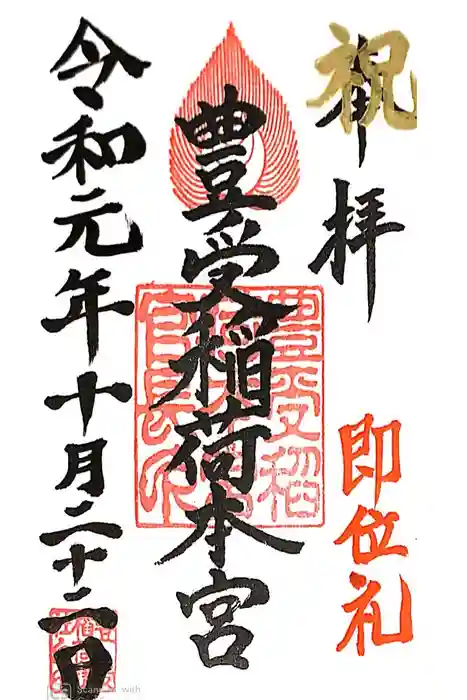 祝
奉拝
即位礼
豊受稲荷本宮
令和元年十月二十二日
Scanned with